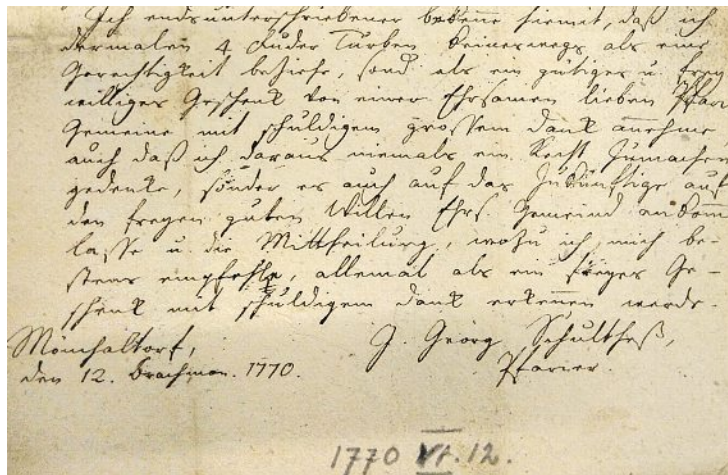 Ich endsunterschriebener bekenne hiemit, daß ich
dermalen 4 Fuder Turben keineswegs als eine
Gerechtigkeit beziehe, sond. als ein gütiges u. frey
williges Geschenk von einer Ehrsamen lieben Pfarr
Gemeine mit schuldigem grossem Dank annehme,
auch daß ich daraus niemals ein Recht zumachen
gedenke, sonder es auch auf das Zukünftige auf
den freyen guten Willen Ehrs. Gemeind ankomm
lasse u. die Mittheilung, wozu ich mich be-
stens empfehle, allemal als ein freyes Ge-
schenk mit schuldigem Dank erkennen werde.
Mönchaltorf, J. Georg Schultheß,
den 12. Brachmon. 1770. Pfarrer.
1770 VI. 12.